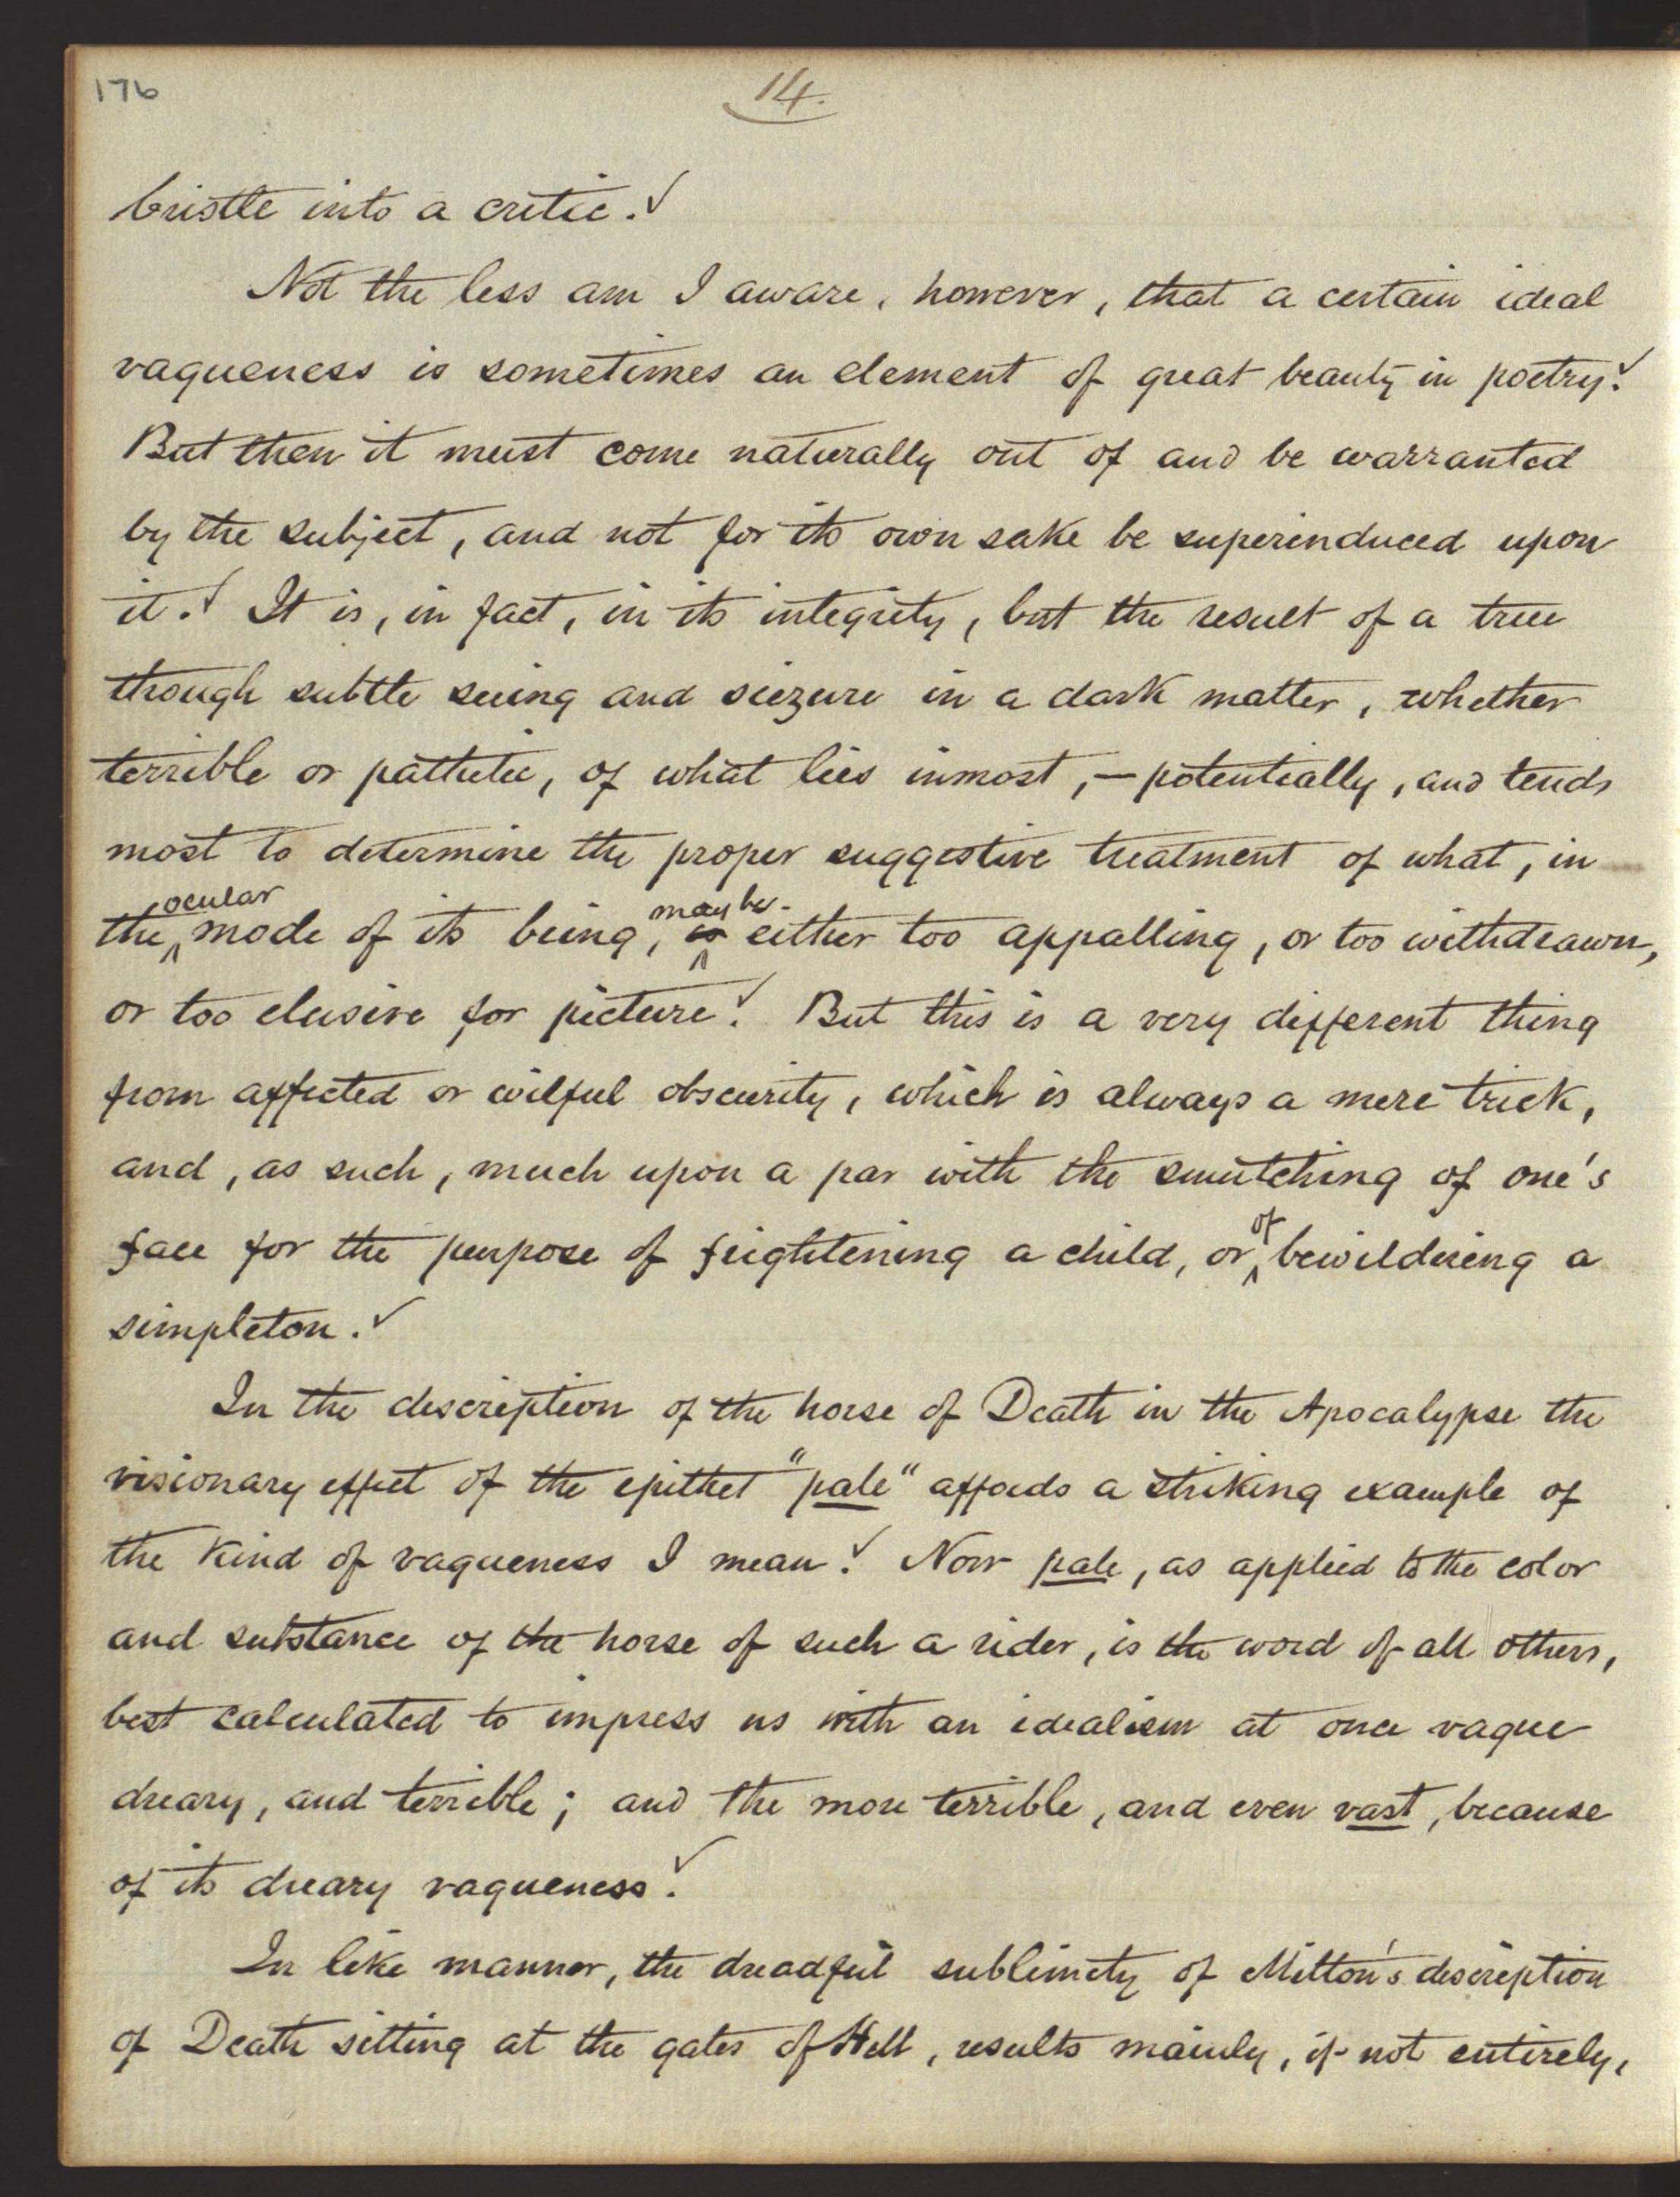 176
14.
bristle into a critic.
Not the less am I aware, however, that a certain ideal
vagueness is sometimes an element of great beauty in poetry.
But then it must come naturally out of and be warranted
by the subject, and not for its own sake be superinduced upon
it. It is, in fact, in its integrity, but the result of a true
though subtle seeing and siezure in a dark matter, whether
terrible or pathetic, of what lies inmost, — potentially, and tends
most to determine the proper suggestive treatment of what, in
the ocular mode of its being, may be either too appalling, or too withdrawn,
or too elusive for picture. But this is a very different thing
from affected or wilful obscurity, which is always a mere trick,
and, as such, much upon a par with the smutching of one's
face for the purpose of frightening a child, or of bewildering a
simpleton.
In the description of the horse of Death in the Apocalypse the
visionary effect of the epithet "pale" affords a striking example of
the kind of vagueness I mean. Now pale, as applied to the color
and substance of the horse of such a rider, is the word of all others,
best calculated to impress us with an idealism at once vague
dreary, and terrible; and the more terrible, and even vast, because
of its dreary vagueness.
In like manner, the dreadful sublimity of Milton's description
of Death sitting at the gates of Hell, results mainly, if not entirely,